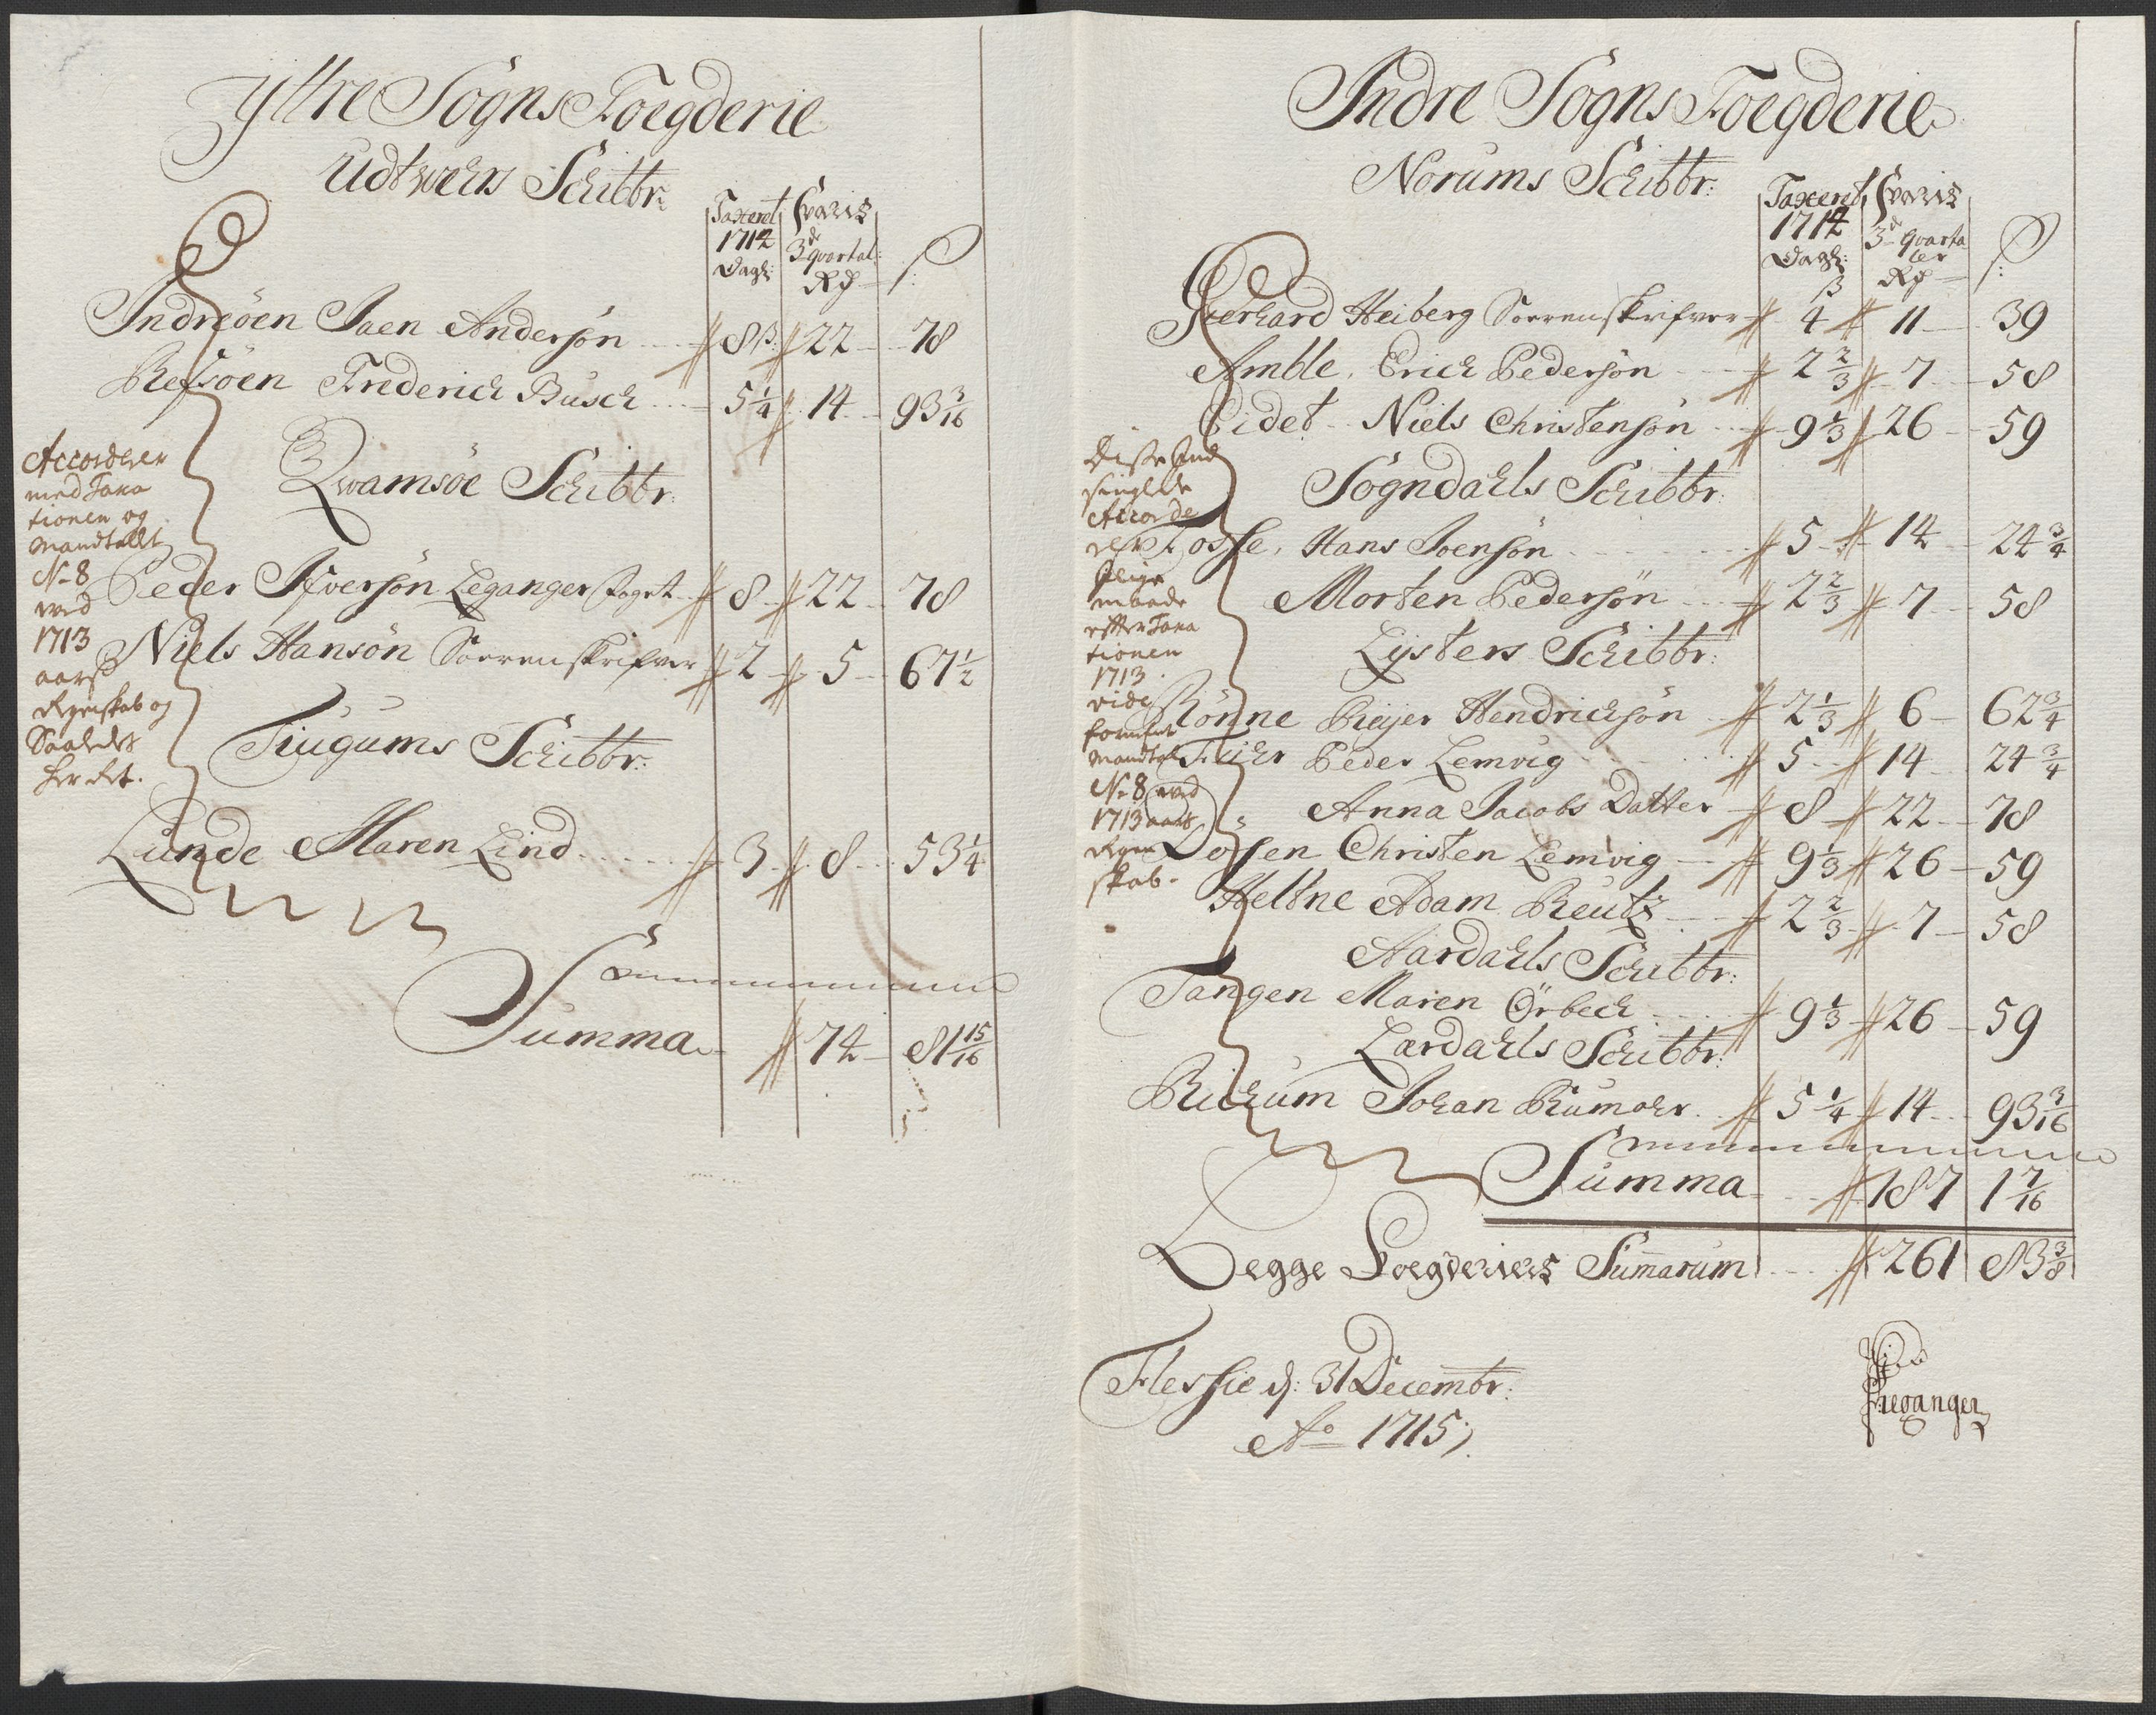 Yttre Sogns Foegderie
Udtwehrs Schibbr:
Taxeret 1714 Dagl: | Svaris 3de qvartal: Rd | ß:
Indreöen Joen Andersøn 8 ß: 22 78
Refsöen Frederich Busch 5 1/4 14 93 3/16
Qwamsöe Schibbr:
Peder Ifversøn Leganger foget 8 22 78
Niels Hansøn Sorrenskrifver 2 5 67 1/2
Tiugums Schibbr:
Lunde Maren Lind 3 8 53 1/4
Summa 74 81 15/16
Accorderer
med Taxa
tionen og
Mandtallet
No 8
ved
1713
aars
Regnskab og
Saaledes
før det.
Indre Sogns Foegderie
Norums Schibbr:
Taxeret 1714 Dagl: ß | Svaris 3de qvarta ler Rd | ß:
Gerhard Heiberg Sorrenskrifver 4 11 39
Amble, Erich Pedersøn 2 2/3 7 58
Eidet Niels Christensøn 9 1/3 26 59
Sogndahls Schibbr:
Fosse, Hans Joensøn 5 14 24 3/4
Morten Pedersøn 2 2/3 7 58
Lysters Schibbr:
Rönne Reijer Hendrichsøn 2 1/3 6 62 3/4
Peder Lemvig 5 14 24 3/4
Anna Jacobs Datter 8 22 78
Dösen Christen Lemvig 9 1/3 26 59
Heltne Adam Reutz 2 2/3 7 58
Aardahls Schibbr:
Tangen Maren Örbech 9 1/3 26 59
Lardahls Schibbr:
Richum Johan Rumohr 5 1/4 14 93 3/16
Summa 187 1 7/16
Begge Foegderiers Summarum 261 83 3/8
Disse Ind
Accorde
rer
maade
efter Taxa
tionen
1713
vide
Mandtal
No 8 ved
1713 aars
Regn
skab.
Flessie d: 31 Decembr:
Ao 1715